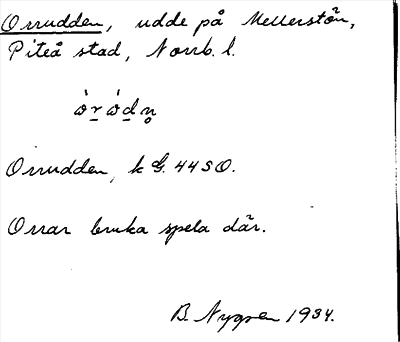 Orrudden, udde på Mellerstön,
Piteå stad, Norrb. l.
Orrudden, k G. 44 SO.
Orrar bruka spela där.
B. Nygren 1934.